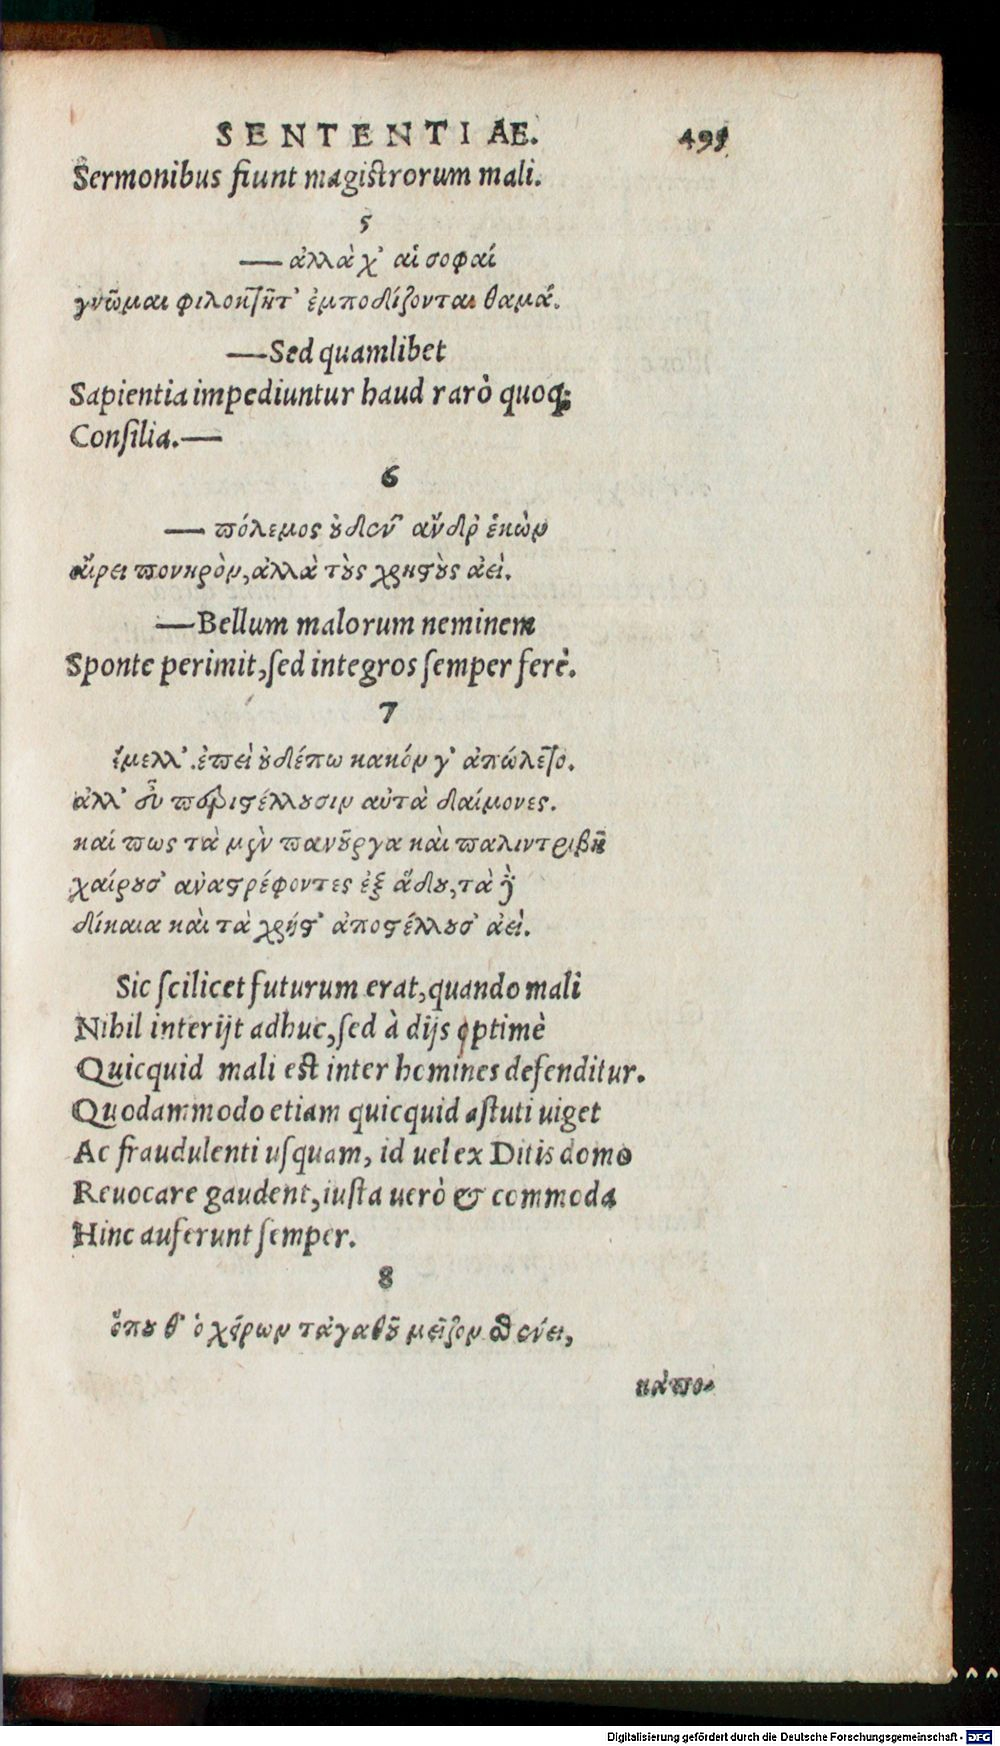 SENTENTIAE. 495
Sermonibus fiunt magistrorum mali.
5
— ἀλλὰ χ' αἱ σοφαί
γνῶμαι φιλοκτῆτ' ἐμποδίζονται θαμά.
—Sed quamlibet
Sapientia impediuntur haud rarò quoq;
Consilia.—
6
— πόλεμος ȣ̓δέν' ἄνδρ' ἑκὼν
αἴρει πονηρὸν, ἀλλὰ τȣ̀ς χρηστȣ̀ς ἀεὶ.
—Bellum malorum neminem
Sponte perimit, ſed integros ſemper ferè.
7
ἔμελλ'. ἐπεὶ ȣ̓δέπω κακόν γ' ἀπώλετο.
ἀλλ' εὖ περιστέλλȣσιν αὐτὰ δαίμονες.
καί πως τὰ μὲν πανȣ͂ργα καὶ παλιντριβῆ
χαίρȣσ' ἀναστρέφοντες ἐξ ᾅδȣ, τὰ δὲ
δίκαια καὶ τὰ χρήστ' ἀποστέλλȣσ' ἀεὶ.
Sic ſcilicet futurum erat, quando mali
Nihil interijt adhuc, ſed à dijs optimè
Quicquid mali est inter homines defenditur.
Quodammodo etiam quicquid aſtuti uiget
Ac fraudulenti uſquam, id uel ex Ditis domo
Reuocare gaudent, iuſta uerò & commoda
Hinc auferunt ſemper.
8
ὅπȣ θ' ὁ χείρων τἀγαθȣ͂ μεῖζον σθένει,
κἀπο-
Digitalisierung gefördert durch die Deutsche Forschungsgemeinschaft - DFG